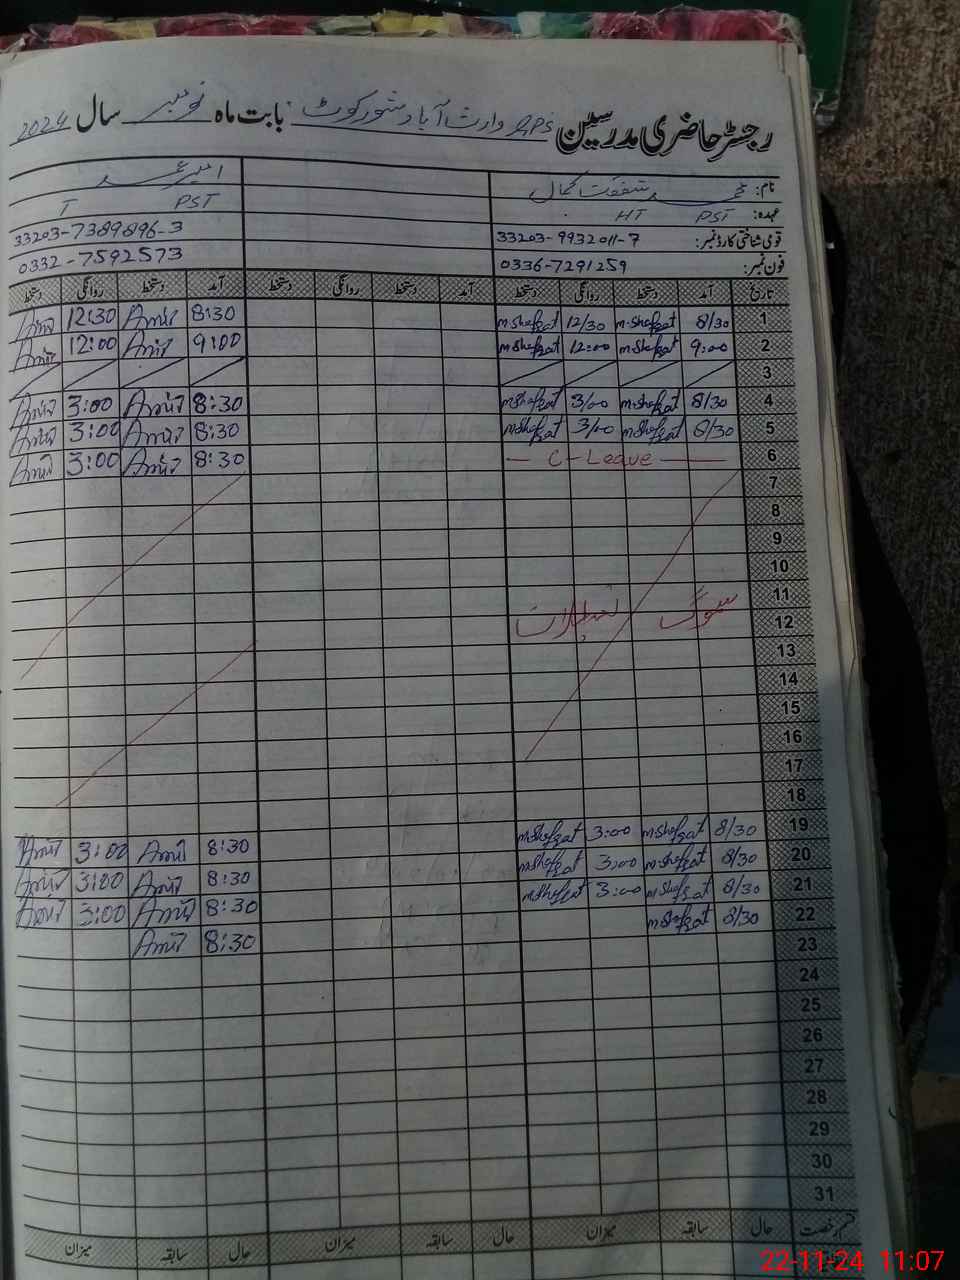 رجسٹر حاضری مدرسین GPS وارث آباد شورکوٹ بابت ماہ نومبر سال 2024
نام: محمد شفقت کمال امیر عمر
عہدہ: PST HT PST T
قومی شناختی کارڈ نمبر: 33203-9932011-7 33203-7389896-3
فون نمبر: 0336-7291259 0332-7592573
تاریخ آمد دستخط روانگی دستخط آمد دستخط روانگی دستخط آمد دستخط روانگی دستخط
1 8/30 m.Shafqat 12/30 m.Shafqat 8:30 Amir 12:30 Amir
2 9:00 m.Shafqat 12:00 m.Shafqat 9:00 Amir 12:00 Amir
3
4 8/30 m.Shafqat 3/00 m.Shafqat 8:30 Amir 3:00 Amir
5 8/30 m.Shafqat 3/00 m.Shafqat 8:30 Amir 3:00 Amir
6 C-Leave 8:30 Amir 3:00 Amir
7
8
9
10
11
12 سموگ تعطیلات
13
14
15
16
17
18
19 8/30 m.Shafqat 3:00 m.Shafqat 8:30 Amir 3:00 Amir
20 8/30 m.Shafqat 3:00 m.Shafqat 8:30 Amir 3:00 Amir
21 8/30 m.Shafqat 3:00 m.Shafqat 8:30 Amir 3:00 Amir
22 8/30 m.Shafqat 8:30 Amir
23
24
25
26
27
28
29
30
31
قسم رخصت حال سابقہ میزان حال سابقہ میزان حال سابقہ میزان
22-11-24 11:07